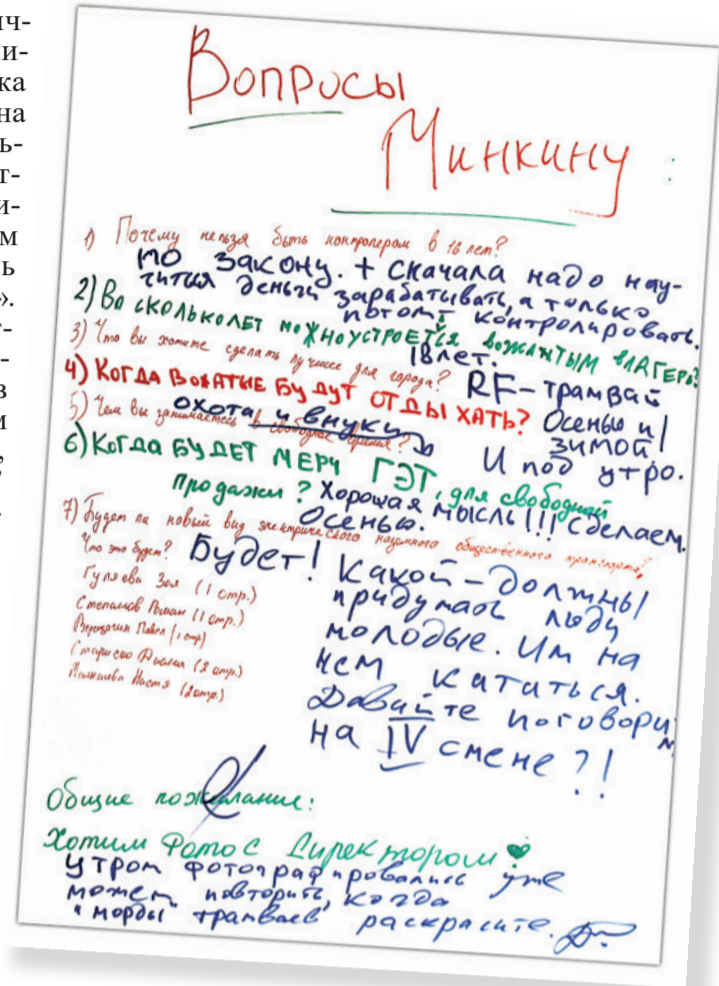 ич-
и-
ка
на
ь-
т-
и-
м
ь
».
т-
-
в
м
,
.
Вопросы
Минкину:
1) Почему нельзя быть контролером в 16 лет?
по закону. + сначала надо нау-
читься деньги зарабатывать, а только
потом контролировать.
2) Во сколько лет можно устроется вожантым в лагерь?
18 лет.
3) Что вы хотите сделать лучшее для города?
RF-трамвай
4) Когда вожатые будут отдыхать? Осенью и
зимой!
И под утро.
5) Чем вы занимаетесь в свободное время?
охота и внуки
6) Когда будет мерч ГЭТ, для свободной
продажи? Хорошая мысль!!! Сделаем.
Осенью.
7) Будет ли новый вид электрического наземного общественного транспорта?
Что это будет? Будет! Какой – должны
придумать люди
молодые. Им на
нем кататься.
Давайте поговорим
на IV смене?!
Гуляева Зоя (1 отр.)
Степанов Роман (1 отр.)
Павел (1 отр)
(2 отр.)
Настя (2 отр.)
Общие пожелание:
Хотим Фото с Директором
Утром фотографировались уже
может повторить, когда
"морды трамваев" раскрасите.